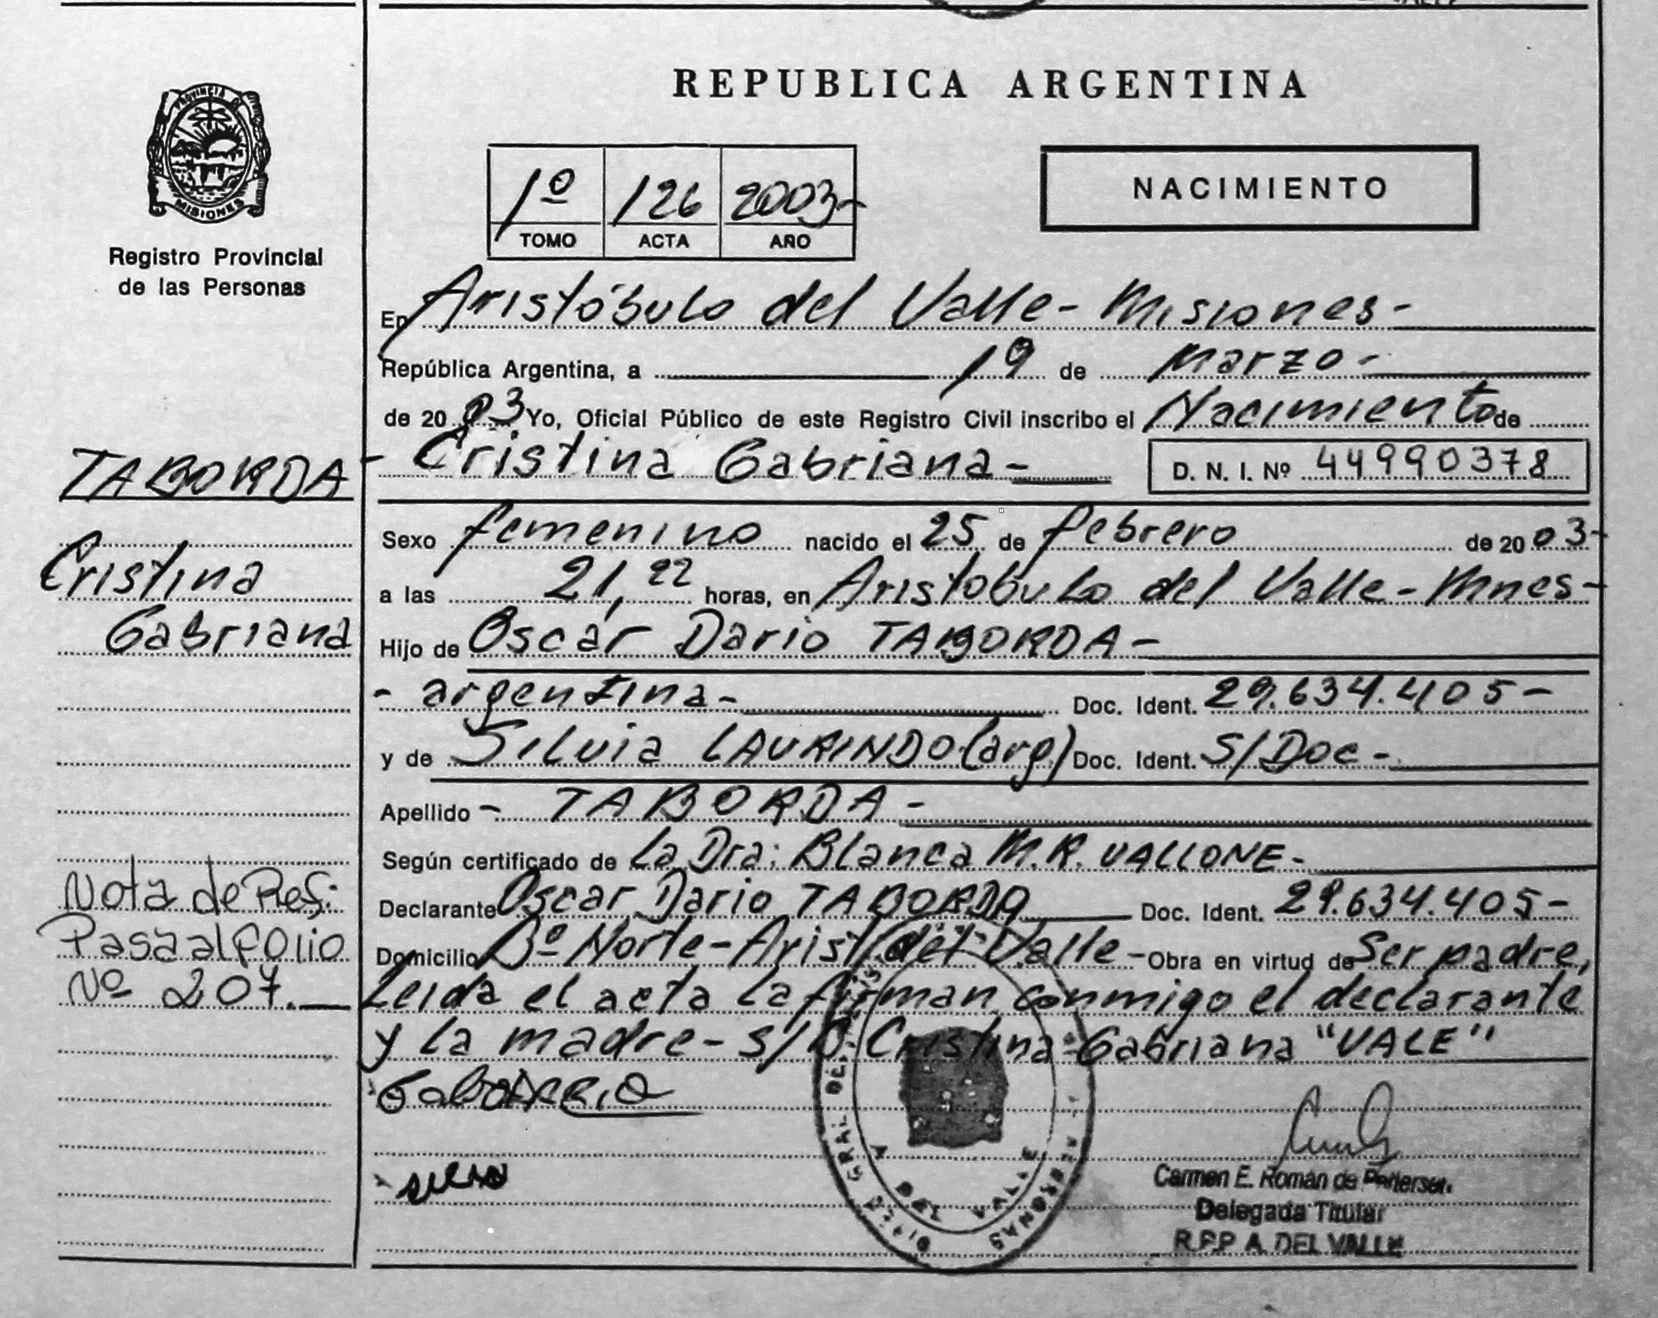 REPUBLICA ARGENTINA
PROVINCIA DE
MISIONES
Registro Provincial
de las Personas
1º 126 2003-
TOMO ACTA AÑO
NACIMIENTO
En Aristóbulo del Valle - Misiones -
República Argentina, a 19 de Marzo -
de 2003 Yo, Oficial Público de este Registro Civil inscribo el Nacimiento de
- Cristina Gabriana - D. N. I. Nº 44990378
Sexo femenino nacido el 25 de febrero de 2003-
a las 21,22 horas, en Aristobulo del Valle - Mnes-
Hijo de Oscar Dario TABORDA -
- argentina - Doc. Ident. 29.634.405 -
y de Silvia LAURINDO (arg) Doc. Ident. S/Doc -
Apellido - TABORDA -
Según certificado de La Dra: Blanca M.R. VALLONE -
Declarante Oscar Dario TABORDA Doc. Ident. 29.634.405 -
Domicilio Bº Norte - Arist. del Valle - Obra en virtud de Ser padre,
Leida el acta la firman conmigo el declarante
y la madre - s/b Cristina Gabriana "VALE"
TABORDA
Cristina
Gabriana
Nota de Ref:
Pasa al folio
Nº 207.
Carmen E. Román de
Delegada Titular
R.P.P A. DEL VALLE
A. DEL VALLE